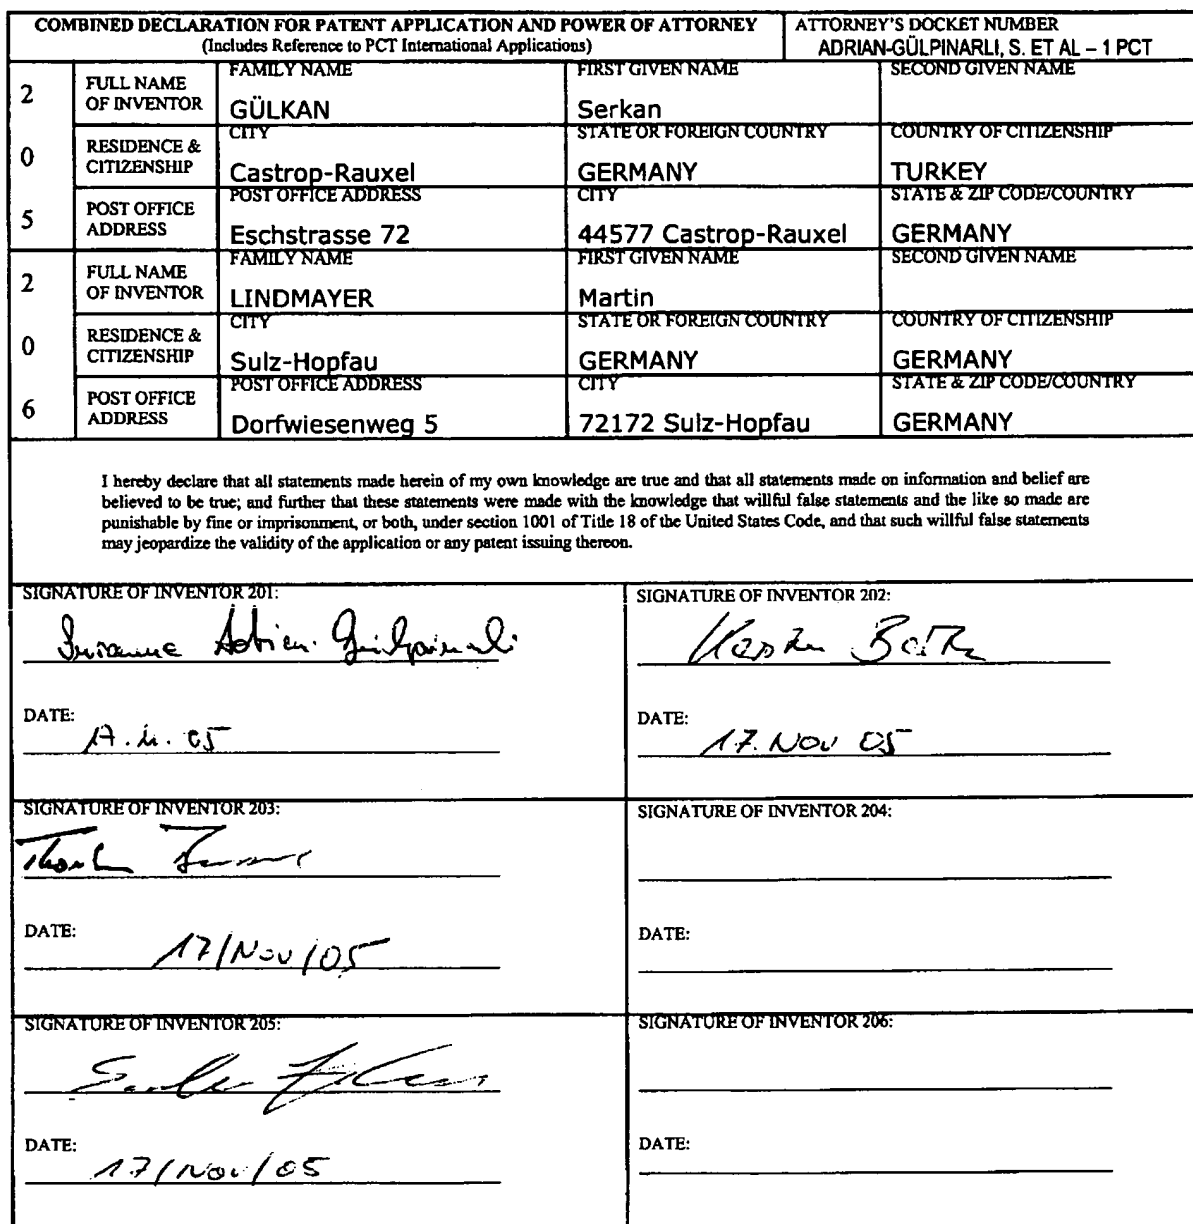 COMBINED DECLARATION FOR PATENT APPLICATION AND POWER OF ATTORNEY
(Includes Reference to PCT International Applications)
ATTORNEY'S DOCKET NUMBER
ADRIAN-GÜLPINARLI, S. ET AL – 1 PCT
2 0 5
FULL NAME OF INVENTOR
FAMILY NAME
GÜLKAN
FIRST GIVEN NAME
Serkan
SECOND GIVEN NAME
RESIDENCE & CITIZENSHIP
CITY
Castrop-Rauxel
STATE OR FOREIGN COUNTRY
GERMANY
COUNTRY OF CITIZENSHIP
TURKEY
POST OFFICE ADDRESS
POST OFFICE ADDRESS
Eschstrasse 72
CITY
44577 Castrop-Rauxel
STATE & ZIP CODE/COUNTRY
GERMANY
2 0 6
FULL NAME OF INVENTOR
FAMILY NAME
LINDMAYER
FIRST GIVEN NAME
Martin
SECOND GIVEN NAME
RESIDENCE & CITIZENSHIP
CITY
Sulz-Hopfau
STATE OR FOREIGN COUNTRY
GERMANY
COUNTRY OF CITIZENSHIP
GERMANY
POST OFFICE ADDRESS
POST OFFICE ADDRESS
Dorfwiesenweg 5
CITY
72172 Sulz-Hopfau
STATE & ZIP CODE/COUNTRY
GERMANY
I hereby declare that all statements made herein of my own knowledge are true and that all statements made on information and belief are
believed to be true; and further that these statements were made with the knowledge that willful false statements and the like so made are
punishable by fine or imprisonment, or both, under section 1001 of Title 18 of the United States Code, and that such willful false statements
may jeopardize the validity of the application or any patent issuing thereon.
SIGNATURE OF INVENTOR 201:
Susanne Adrian-Gülpinarli
DATE:
17.11.05
SIGNATURE OF INVENTOR 202:
DATE:
17. Nov 05
SIGNATURE OF INVENTOR 203:
DATE:
17/Nov/05
SIGNATURE OF INVENTOR 204:
DATE:
SIGNATURE OF INVENTOR 205:
DATE:
17/Nov/05
SIGNATURE OF INVENTOR 206:
DATE: